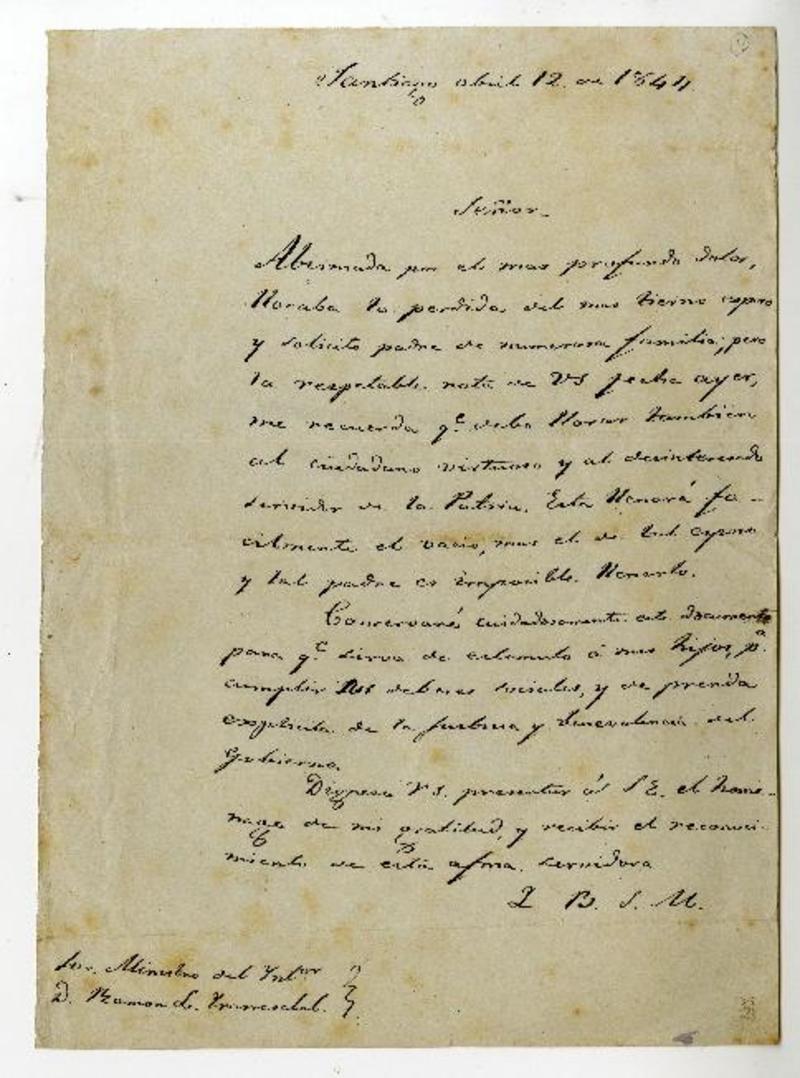 Santiago abril 12 de 1844
Señor
Abismada por el mas profundo dolor,
lloraba la perdida del mas tierno esposo
y solicito padre de numerosa familia; pero
la respetable nota de VS fecha ayer,
me recuerda q.e debo llorar tambien
al ciudadano virtuoso y al desinteresado
servidor de la Patria. Esta llenará fa-
cilmente el vacio, mas el de tal esposo
y tal padre es imposible llenarlo.
Conservaré cuidadosamente este documento
para q.e sirva de estimulo á mis hijos, p.a
cumplir los deberes sociales, y de prenda
esplicita de la justicia y benevolencia del
Gobierno.
Dígnese VS. presentar á S E. el home-
nage de mi gratitud, y recibir el reconoci-
miento de esta afma. servidora
Q B. S. M.
Sor. Ministro del Int.or
D. Ramon L. Irarrazabal.